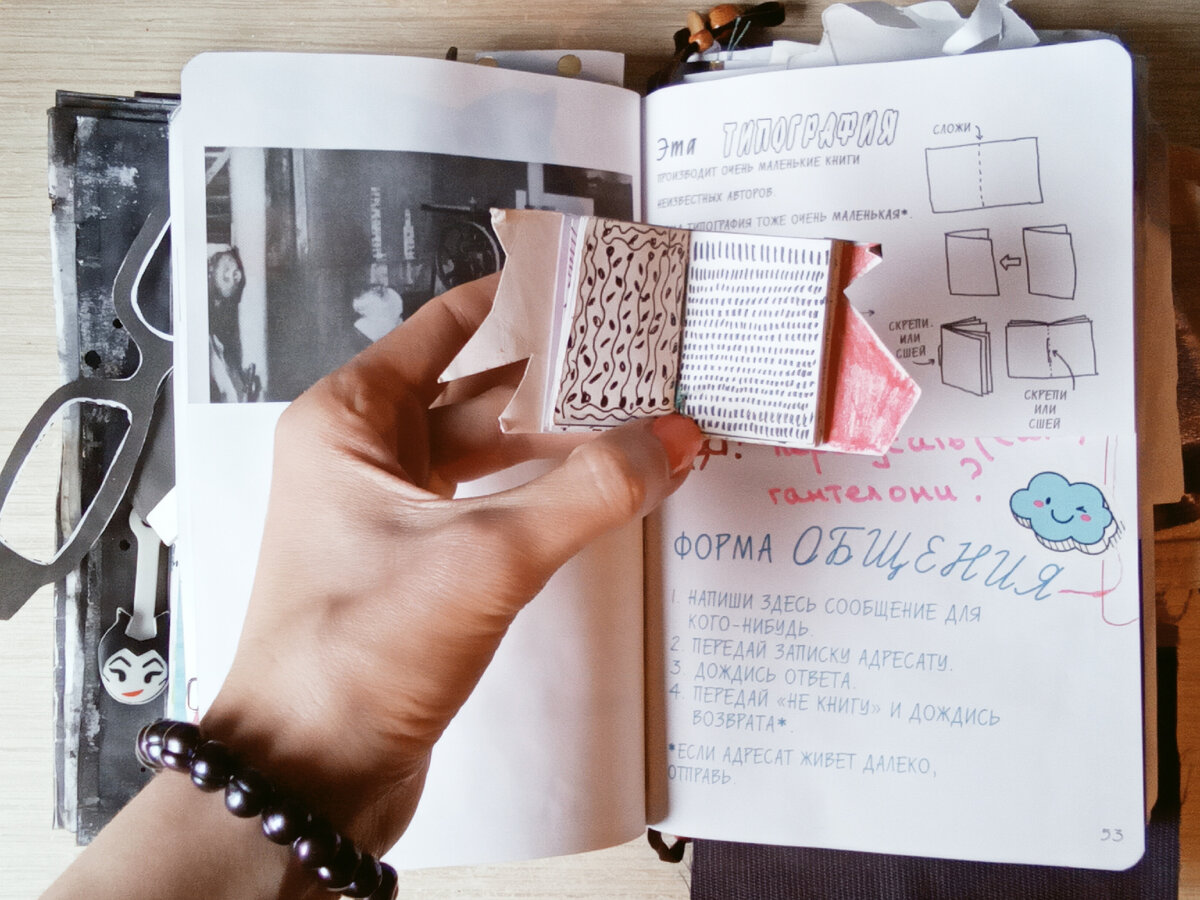 Эта ТИПОГРАФИЯ
ПРОИЗВОДИТ ОЧЕНЬ МАЛЕНЬКИЕ КНИГИ
НЕИЗВЕСТНЫХ АВТОРОВ.
ТИПОГРАФИЯ ТОЖЕ ОЧЕНЬ МАЛЕНЬКАЯ*.
СЛОЖИ
СКРЕПИ.
ИЛИ
СШЕЙ
СКРЕПИ
ИЛИ
СШЕЙ
гантелони?
ФОРМА ОБЩЕНИЯ
1. НАПИШИ ЗДЕСЬ СООБЩЕНИЕ ДЛЯ
КОГО-НИБУДЬ.
2. ПЕРЕДАЙ ЗАПИСКУ АДРЕСАТУ.
3. ДОЖДИСЬ ОТВЕТА.
4. ПЕРЕДАЙ «НЕ КНИГУ» И ДОЖДИСЬ
ВОЗВРАТА*.
*ЕСЛИ АДРЕСАТ ЖИВЕТ ДАЛЕКО,
ОТПРАВЬ.
53